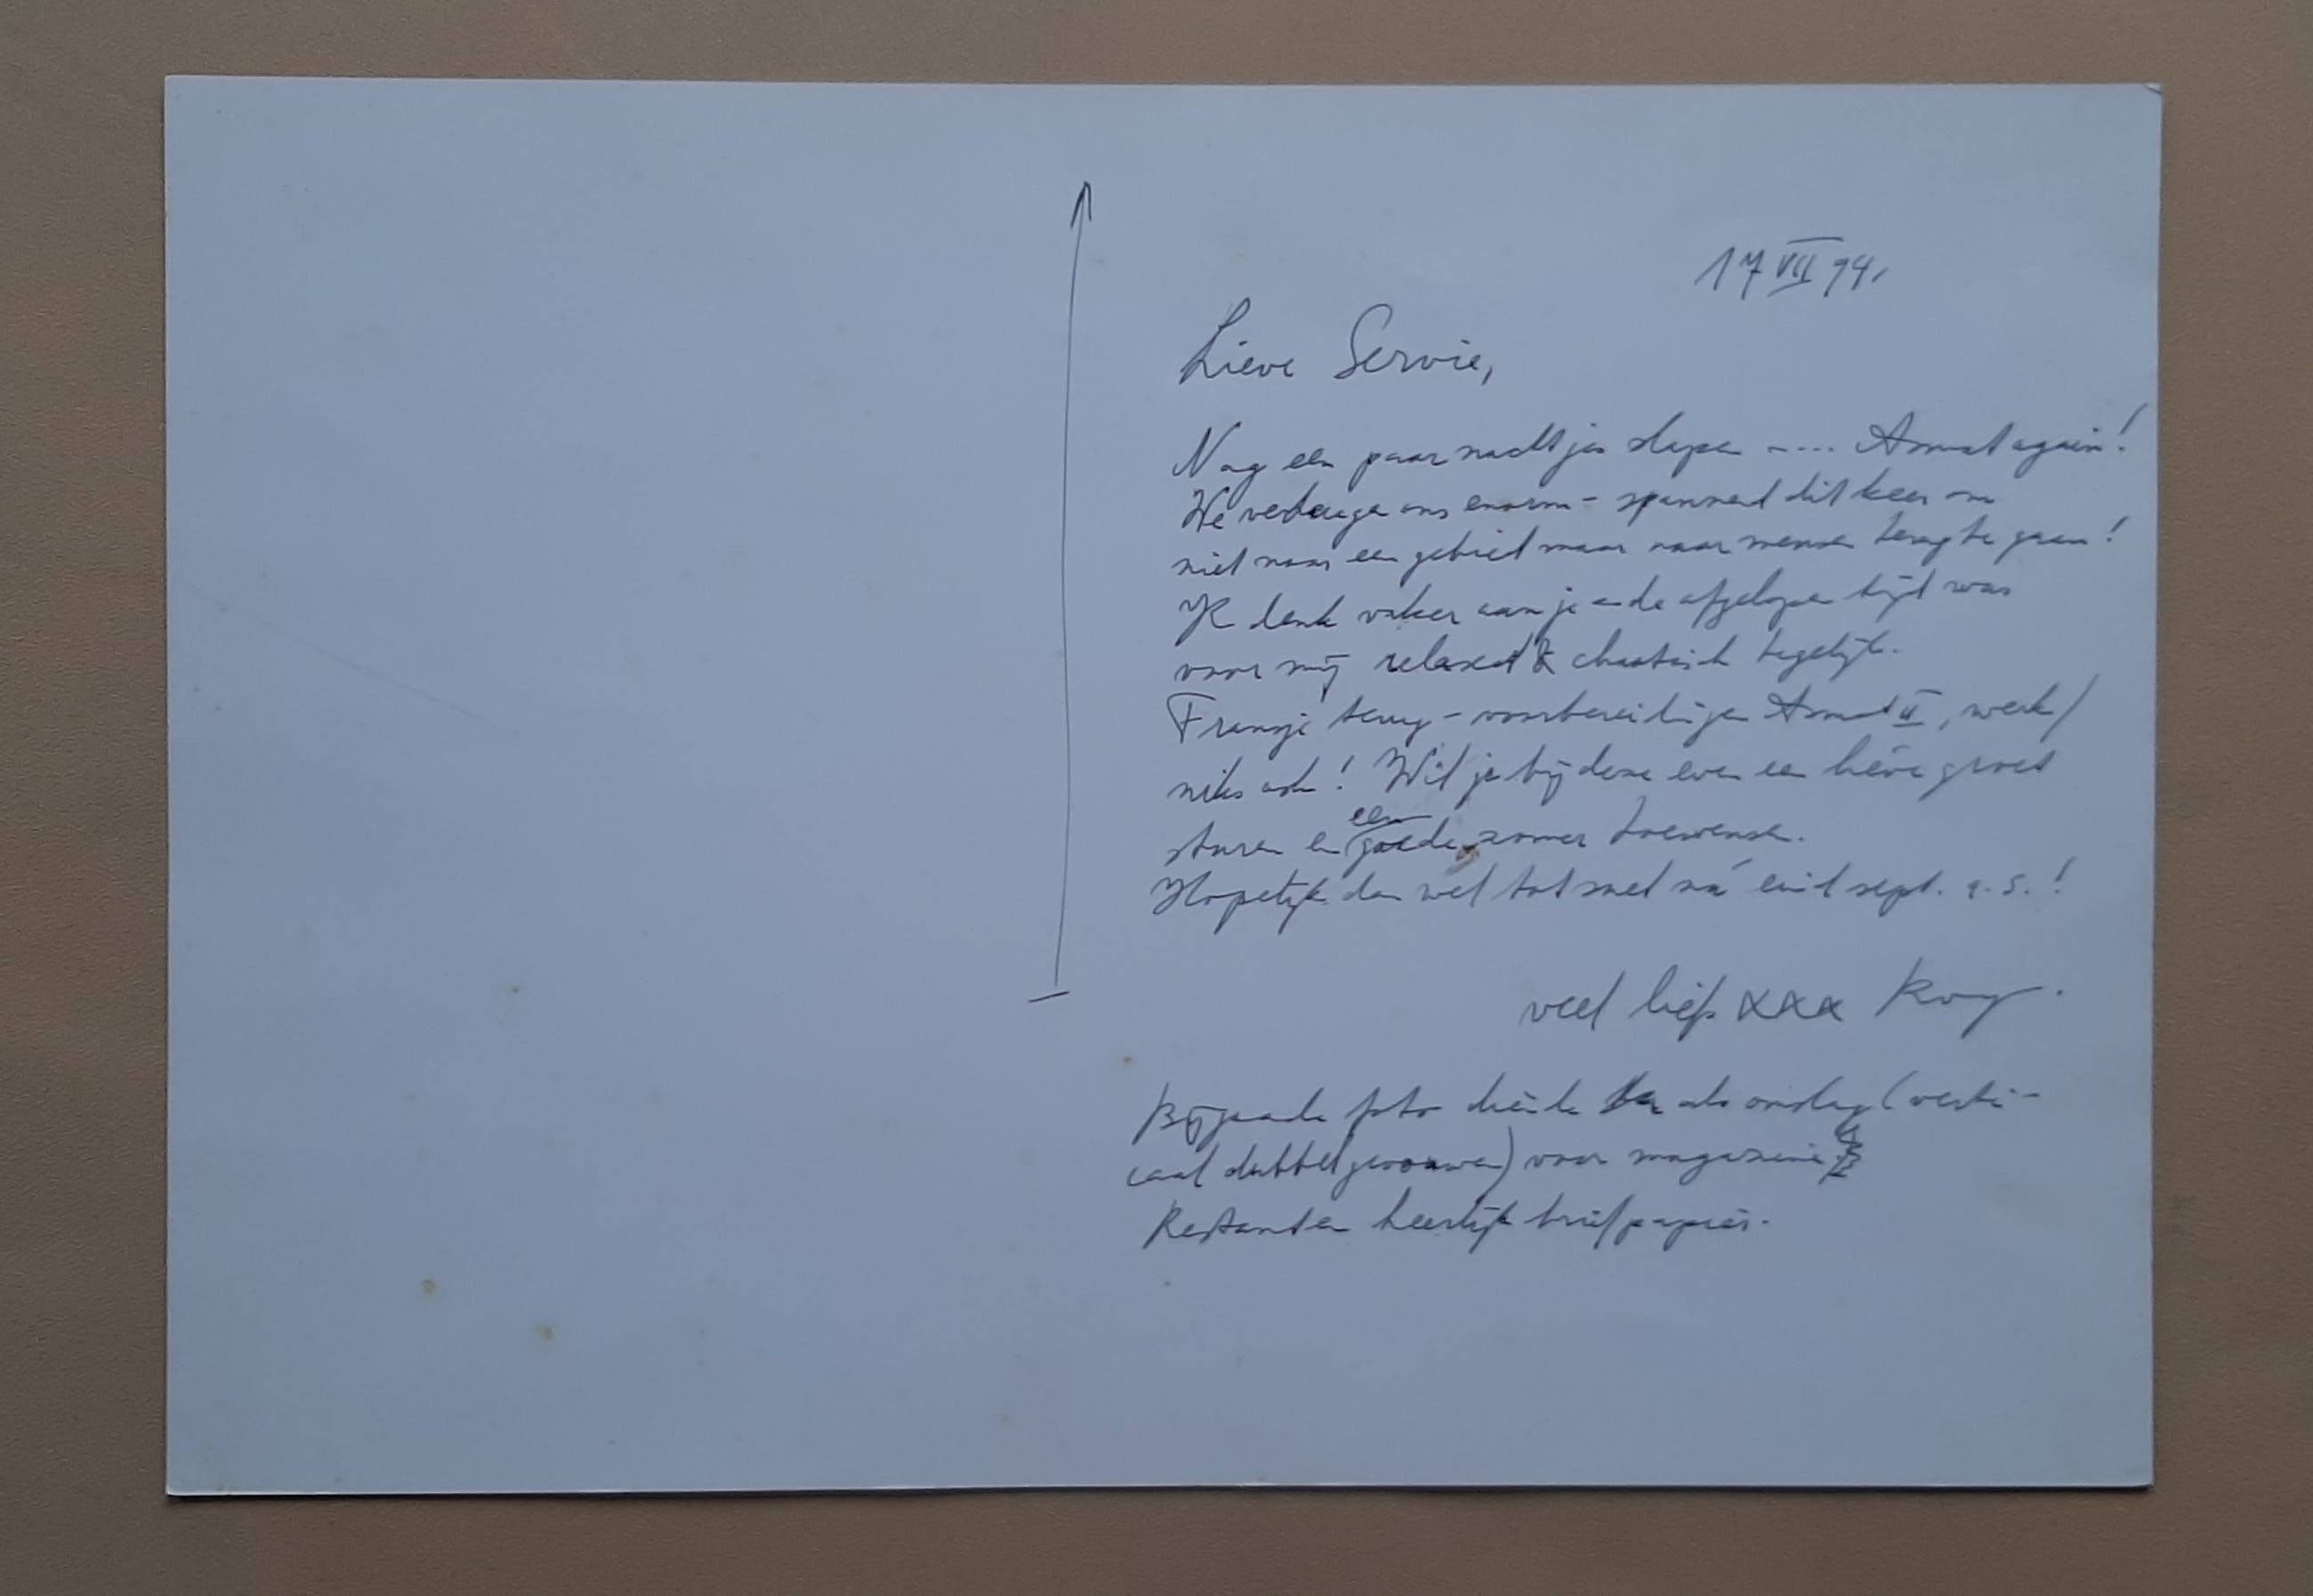 17 VII 94.
Lieve Servie,
Nog een paar nachtjes slapen .... Asmat again!
We verheugen ons enorm - spannend dit keer om
niet naar een gebied maar naar mensen terug te gaan!
Ik denk vaker aan je en de afgelopen tijd was
voor mij relaxed & chaotisch tegelijk.
Fransje terug - voorbereidingen Asmat II, werk/
niks ook! Wil je bij deze even een lieve groet
sturen en een goede zomer toewensen.
Hopelijk dan wel tot snel ná eind sept. a.s.!
veel liefs xxx Roy.
Bijgaande foto diende als omslag (verti-
caal dubbelgevouwen) voor magazine
Restanten heerlijk briefpapier.